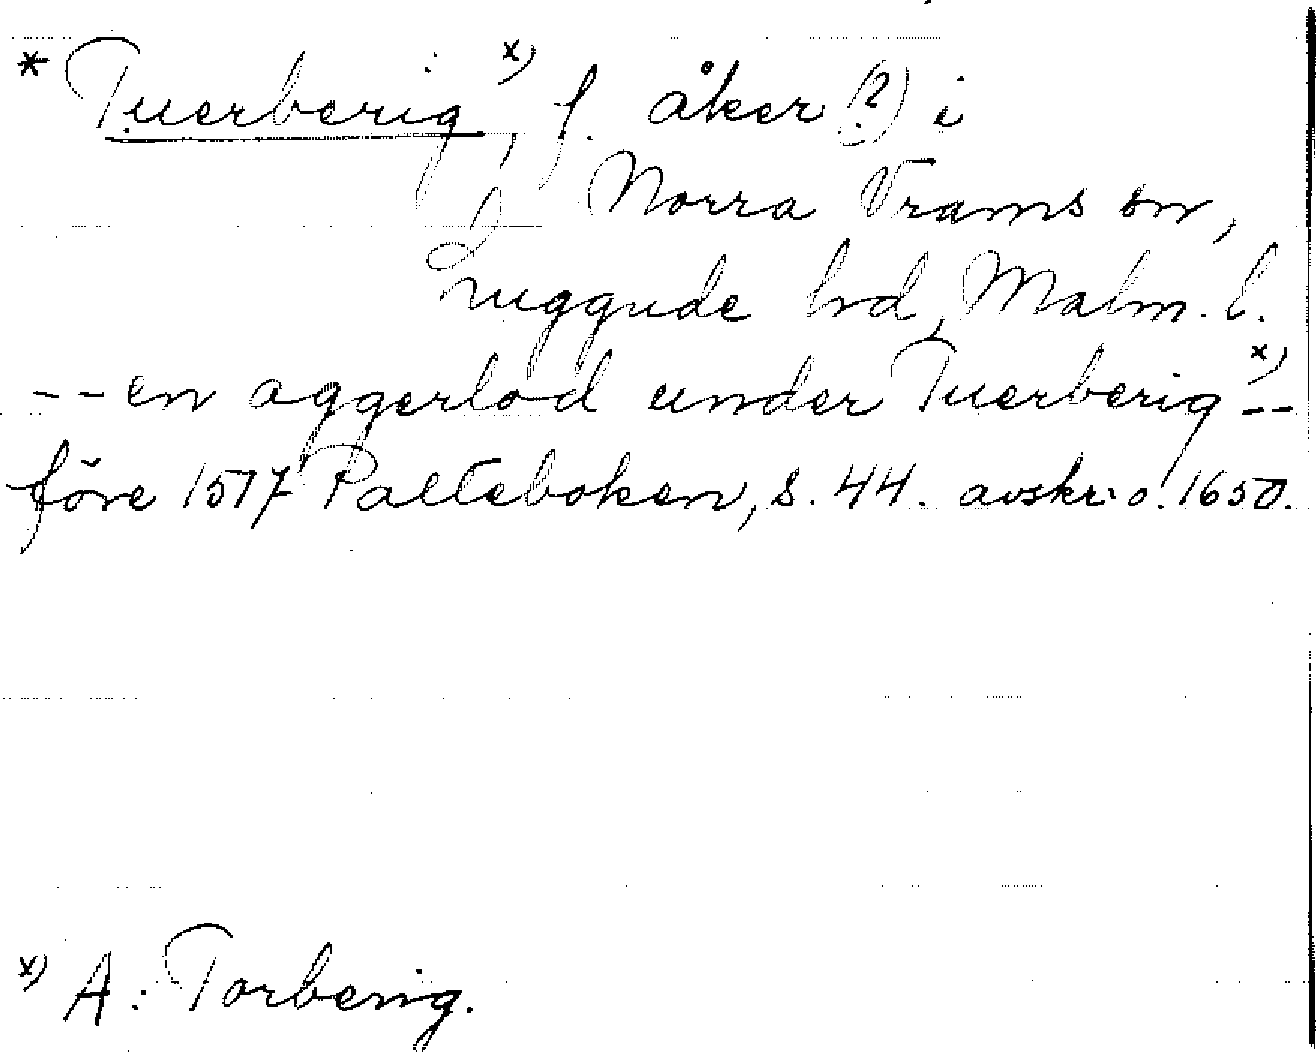 * Tuerberig x), f. åker (?) i
Norra Vrams sn,
Luggude hd, Malm. l.
-- en aggerlod under Tuerberig x) --
före 1517 Palteboken, s. 44. avskr. o. 1650.
x) A: Torberig.